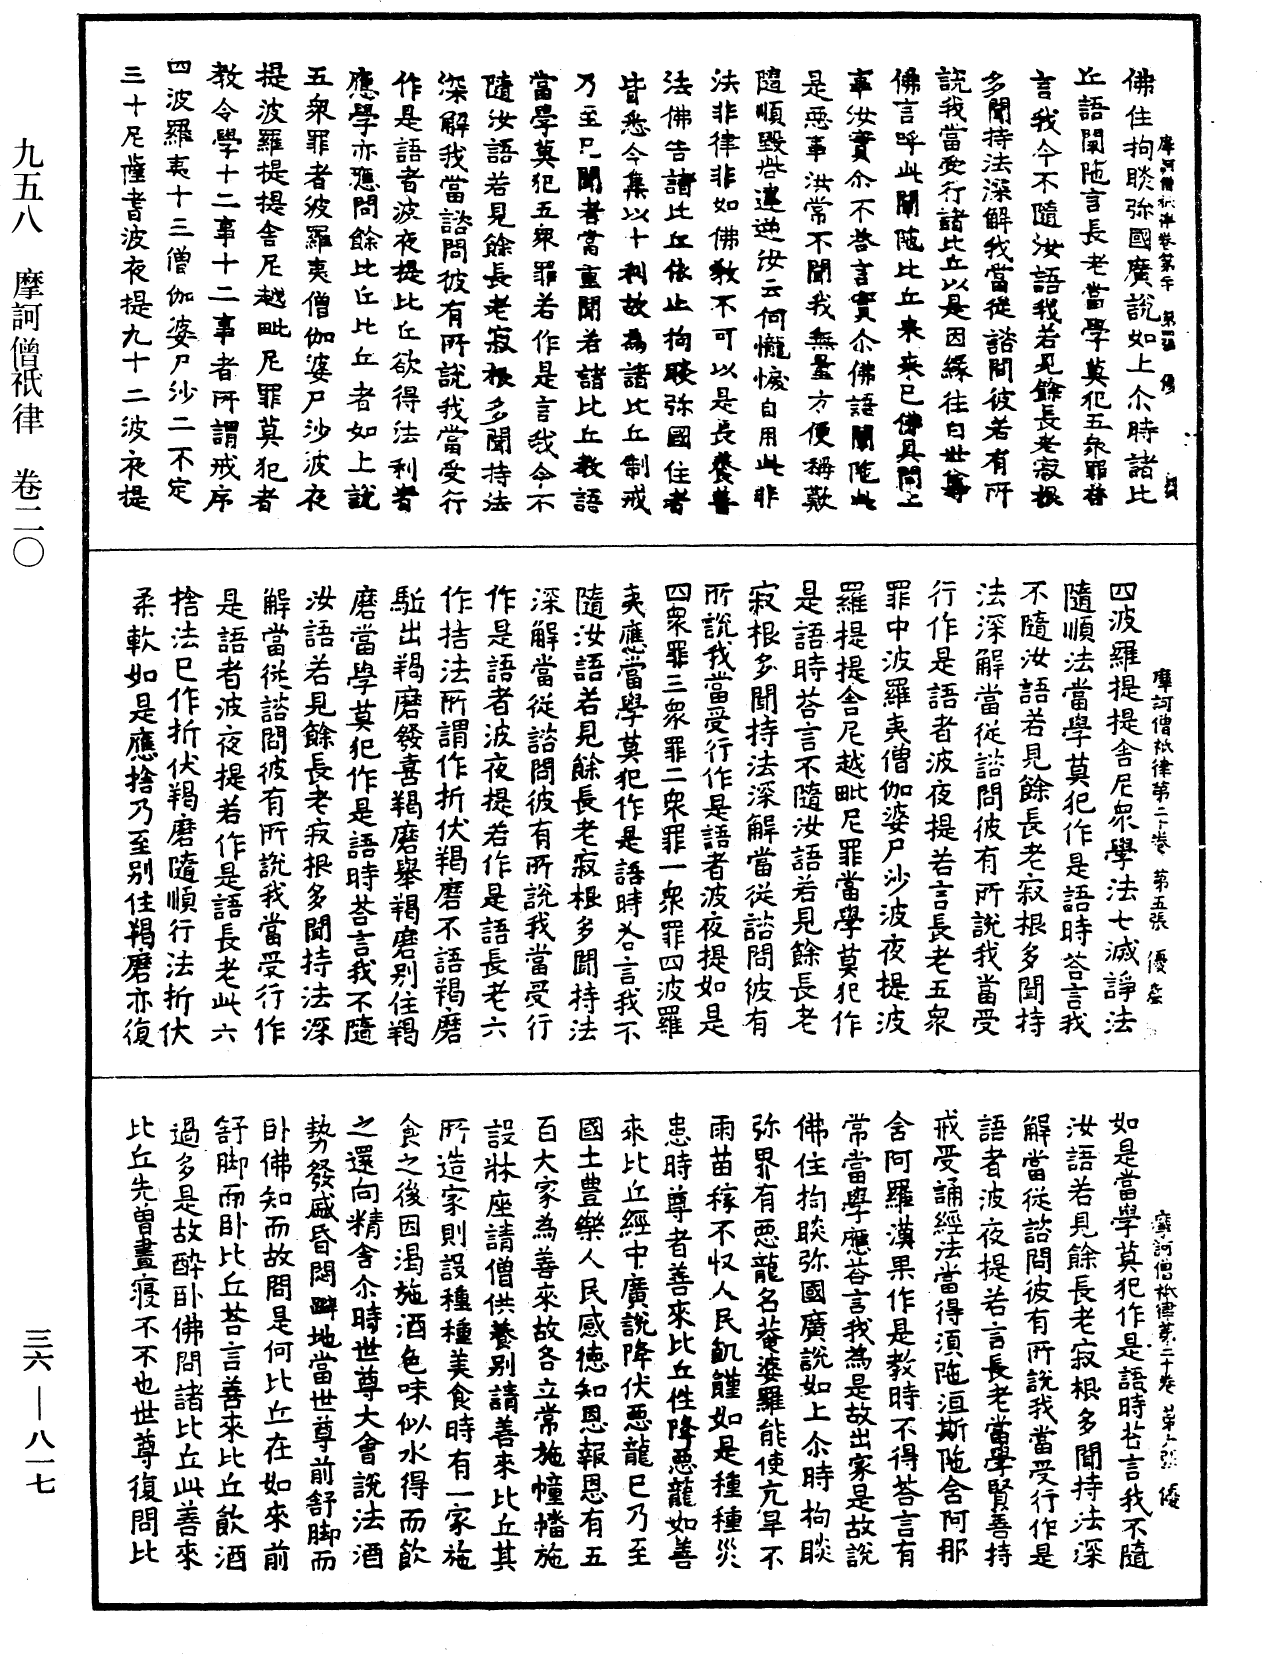 摩訶僧祇律卷第二十 第四張 優
佛住拘睒弥國廣說如上尒時諸比
丘語闡陁言長老當學莫犯五衆罪荅
言我今不隨汝語我若見餘長老寂根
多聞持法深解我當從諮問彼若有所
說我當受行諸比丘以是因緣往白世尊
佛言呼此闡陁比丘來來已佛具問上
事汝實尒不荅言實尒佛語闡陁此
是惡事汝常不聞我無量方便稱歎
隨順毀呰違逆汝云何𢤱悷自用此非
法非律非如佛教不可以是長養善
法佛告諸比丘依止拘睒弥國住者
皆悉令集以十利故為諸比丘制戒
乃至已聞者當重聞若諸比丘教語
當學莫犯五衆罪若作是言我今不
隨汝語若見餘長老寂根多聞持法
深解我當諮問彼有所說我當受行
作是語者波夜提比丘欲得法利者
應學亦應問餘比丘比丘者如上說
五衆罪者波羅夷僧伽婆尸沙波夜
提波羅提提舍尼越毗尼罪莫犯者
教令學十二事十二事者所謂戒序
四波羅夷十三僧伽婆尸沙二不定
三十尼薩耆波夜提九十二波夜提
摩訶僧祇律第二十卷 第五張 優
四波羅提提舍尼衆學法七滅諍法
隨順法當學莫犯作是語時荅言我
不隨汝語若見餘長老寂根多聞持
法深解當從諮問彼有所說我當受
行作是語者波夜提若言長老五衆
罪中波羅夷僧伽婆尸沙波夜提波
羅提提舍尼越毗尼罪當學莫犯作
是語時荅言不隨汝語若見餘長老
寂根多聞持法深解當從諮問彼有
所說我當受行作是語者波夜提如是
四衆罪三衆罪二衆罪一衆罪四波羅
夷應當學莫犯作是語時荅言我不
隨汝語若見餘長老寂根多聞持法
深解當從諮問彼有所說我當受行
作是語者波夜提若作是語長老六
作捨法所謂作折伏羯磨不語羯磨
駈出羯磨發喜羯磨舉羯磨別住羯
磨當學莫犯作是語時荅言我不隨
汝語若見餘長老寂根多聞持法深
解當從諮問彼有所說我當受行作
是語者波夜提若作是語長老此六
捨法已作折伏羯磨隨順行法折伏
柔軟如是應捨乃至別住羯磨亦復
摩訶僧祇律第二十卷 第六張 優
如是當學莫犯作是語時荅言我不隨
汝語若見餘長老寂根多聞持法深
解當從諮問彼有所說我當受行作是
語者波夜提若言長老當學賢善持
戒受誦經法當得須陁洹斯陁含阿那
含阿羅漢果作是教時不得荅言有
常當學應荅言我為是故出家是故說
佛住拘睒弥國廣說如上尒時拘睒
弥界有惡龍名菴婆羅能使亢旱不
雨苗稼不収人民飢饉如是種種災
患時尊者善來比丘性降惡龍如善
來比丘經中廣說降伏惡龍已乃至
國土豊樂人民感德知恩報恩有五
百大家為善來故各立常施幢幡施
設牀座請僧供養別請善來比丘其
所造家則設種種美食時有一家施
食之後因渴施酒色味似水得而飲
之還向精舍尒時世尊大會說法酒
勢發盛昏悶躃地當世尊前舒脚而
卧佛知而故問是何比丘在如來前
舒脚而卧比丘荅言善來比丘飲酒
過多是故醉卧佛問諸比丘此善來
比丘先曽晝寢不不也世尊復問比
九五八 摩訶僧祇律 卷二〇
三六—八一七